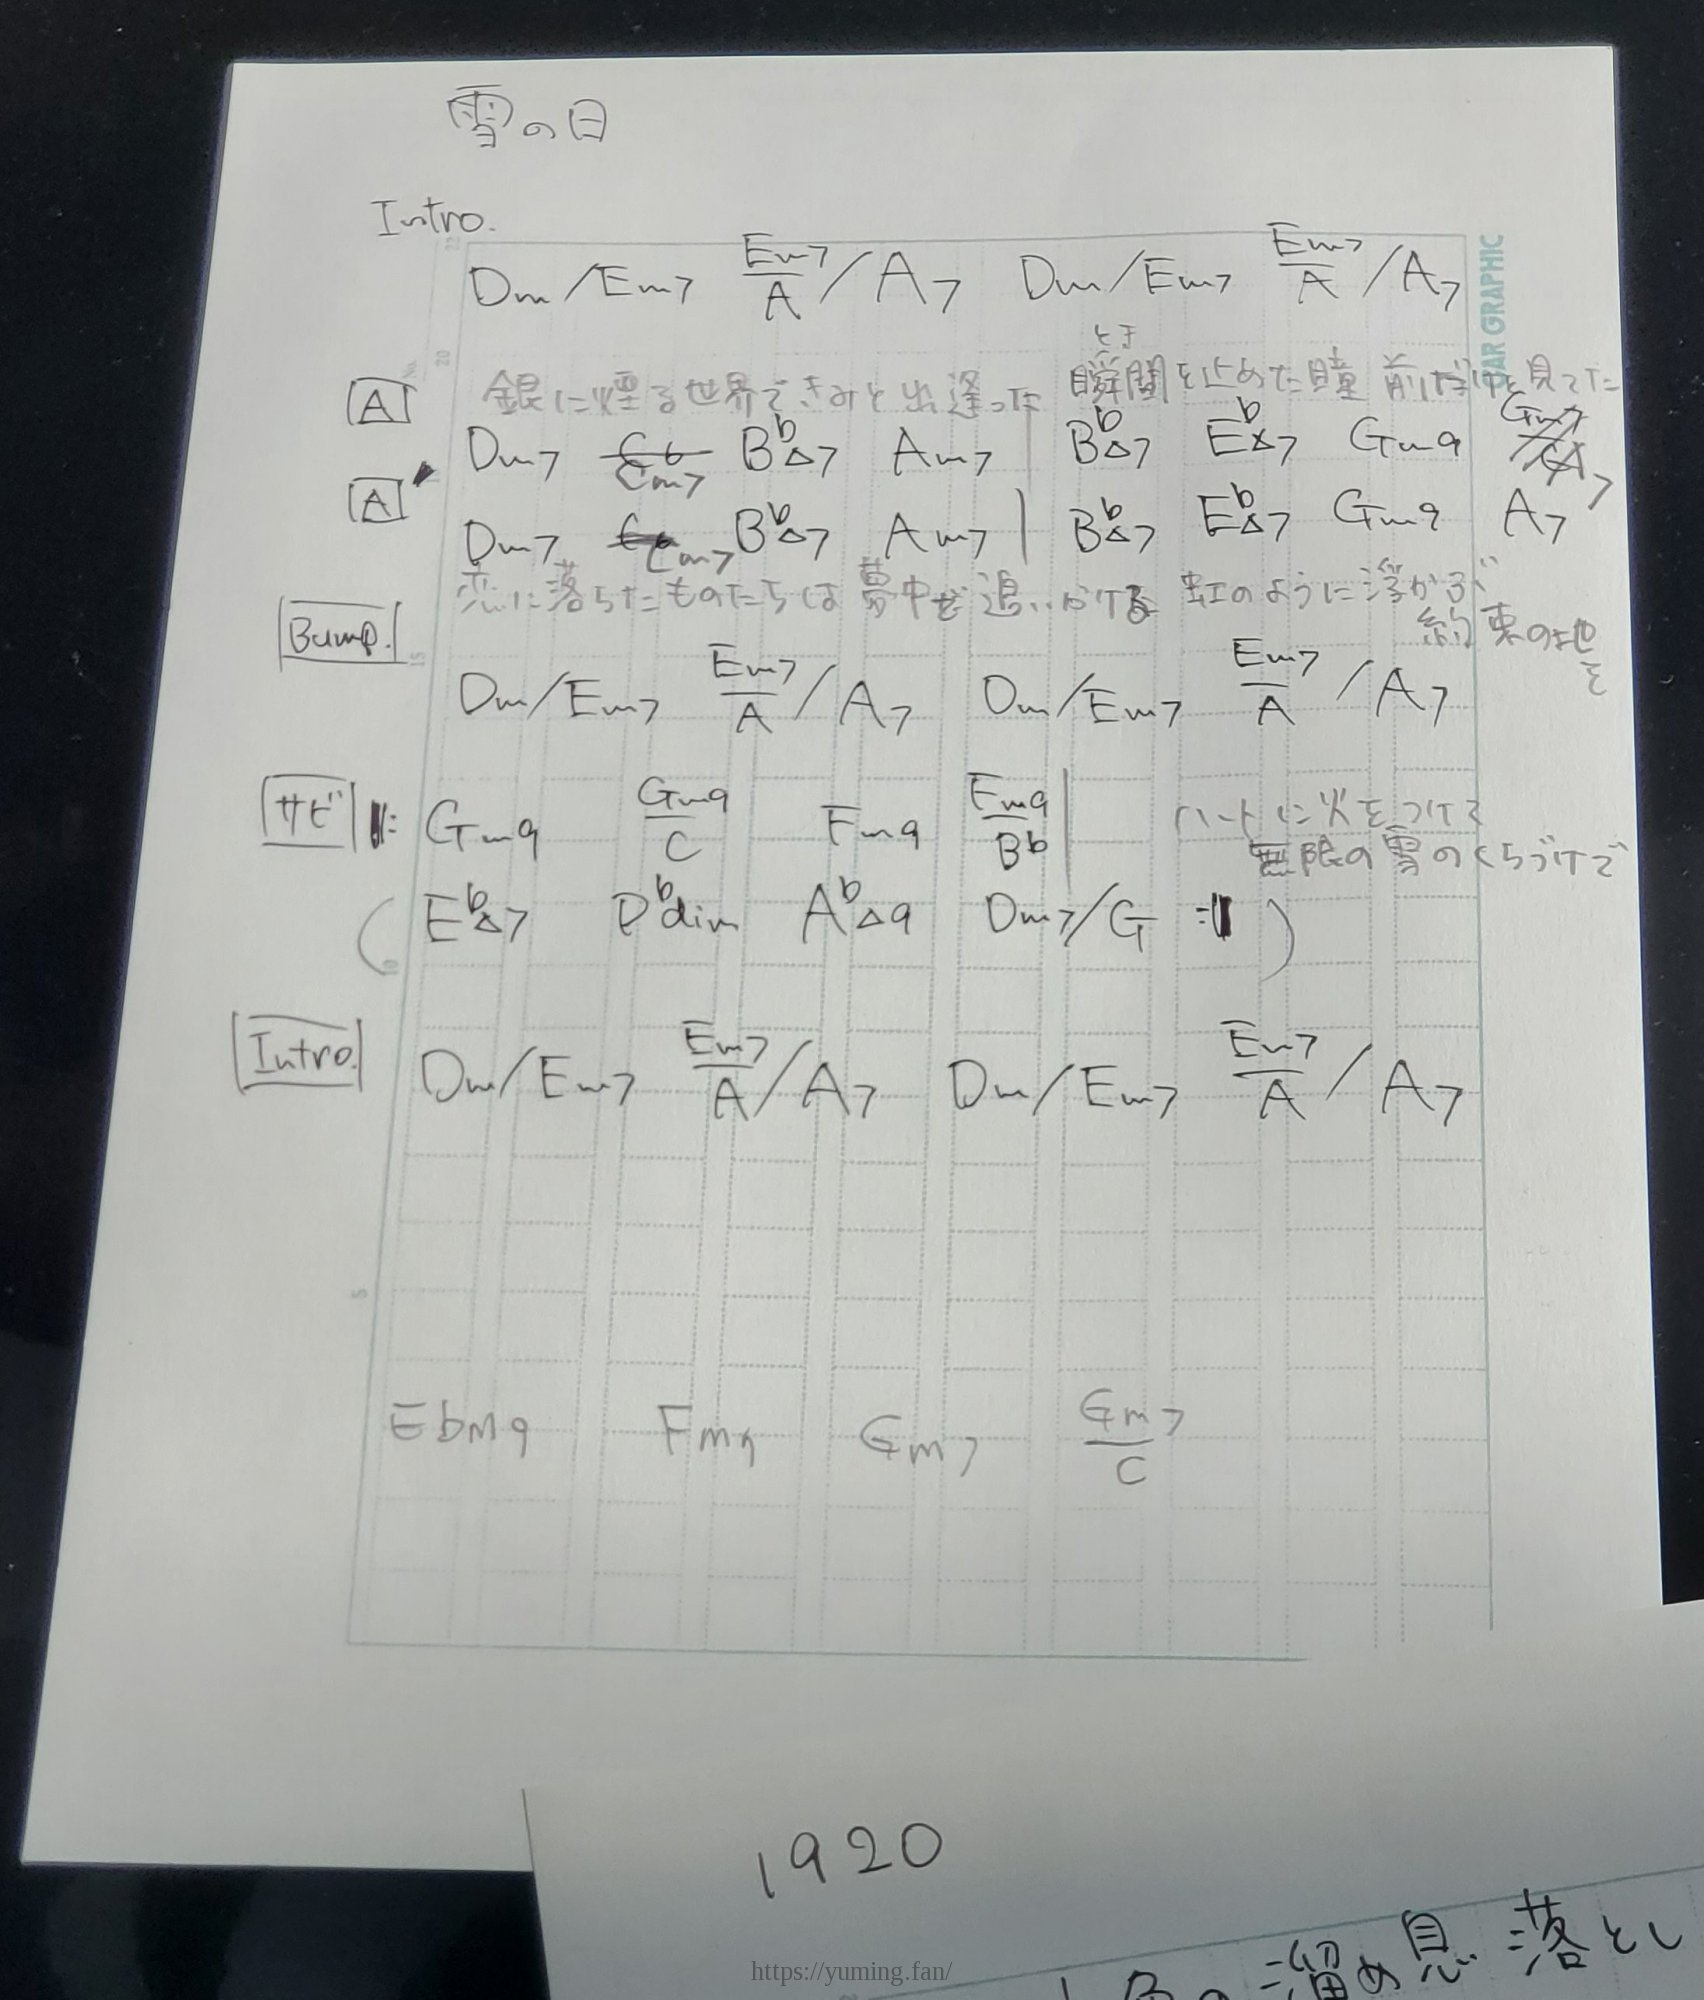 雪の日
Intro.
Dm/Em7 Em7/A / A7 Dm/Em7 Em7/A / A7
とき
A 銀に煙る世界できみと出逢った 瞬間を止めた瞳 前だけを見てた
Dm7 C6 Cm7 B♭△7 Am7 | B♭△7 E♭△7 Gm9 Gm7/A7
A' Dm7 Cm7 B♭△7 Am7 | B♭△7 E♭△7 Gm9 A7
恋に落ちたものたちは夢中で追いかける 虹のように浮かぶ
約束の地を
Bump.
Dm/Em7 Em7/A / A7 Dm/Em7 Em7/A / A7
サビ ‖: Gm9 Gm9/C Fm9 Fm9/Bb | ハートに火をつけて
無限の雪のくちづけで
( E♭△7 D♭dim A♭△9 Dm7/G :‖ )
Intro. Dm/Em7 Em7/A / A7 Dm/Em7 Em7/A / A7
EbM9 Fm9 Gm7 Gm7/C
GRAPHIC
20
15
10
5
1920
の溜め息 落とし
https://yuming.fan/